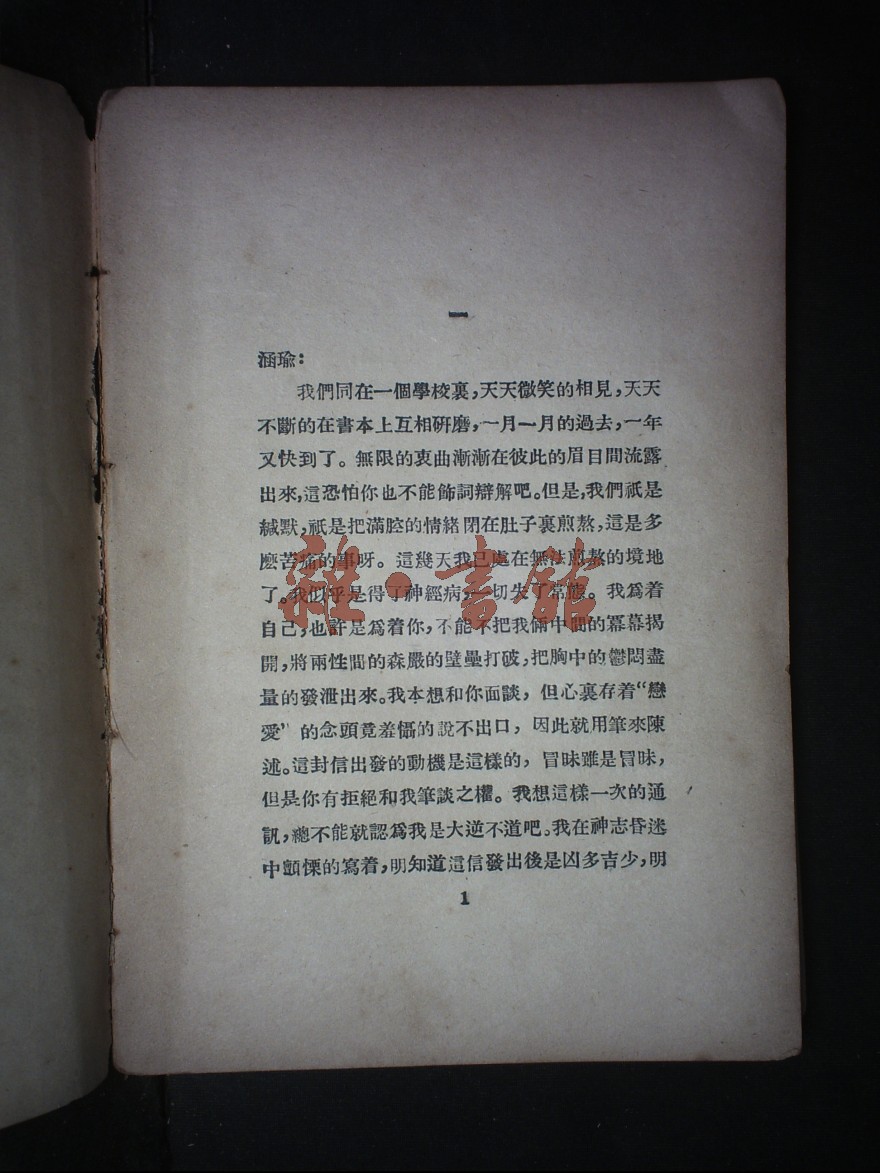 一
涵瑜：
我們同在一個學校裏，天天微笑的相見，天天
不斷的在書本上互相研磨，一月一月的過去，一年
又快到了。無限的衷曲漸漸在彼此的眉目間流露
出來，這恐怕你也不能飾詞辯解吧。但是，我們祇是
緘默，祇是把滿腔的情緒閉在肚子裏煎熬，這是多
麽苦痛的事呀。這幾天我已處在無法煎熬的境地
了。我似乎是得了神經病，一切失了常態。我爲着
自己，也許是爲着你，不能不把我倆中間的羃幕揭
開，將兩性間的森嚴的壁壘打破，把胸中的鬱悶盡
量的發泄出來。我本想和你面談，但心裏存着“戀
愛”的念頭竟羞懾的說不出口，因此就用筆來陳
述。這封信出發的動機是這樣的，冒昧雖是冒昧，
但是你有拒絕和我筆談之權。我想這樣一次的通
訊，總不能就認爲我是大逆不道吧。我在神志昏迷
中顫慄的寫着，明知道這信發出後是凶多吉少，明
1
雜·書館